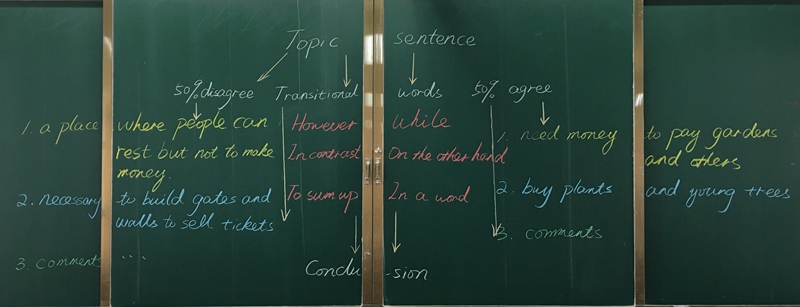 Topic sentence
50% disagree Transitional words 50% agree
1. a place where people can However while 1. need money to pay gardens
rest but not to make In contrast On the other hand and others
money.
2. necessary to build gates and To sum up In a word 2. buy plants and young trees
walls to sell tickets
3. comments
3. comments ....
Conclu-sion